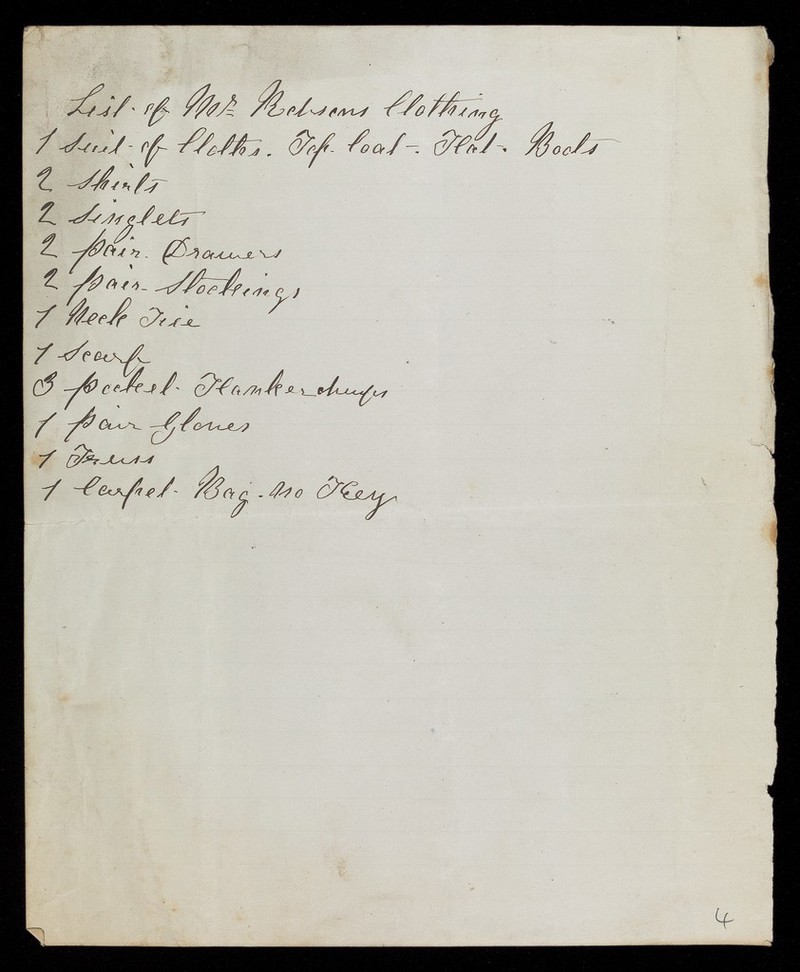 List of Mr Robsons Clothing
1 Suit of Cloths. Top Coat. Hat. Boots
2 Shirts
2 Singlets
2 pair Drawers
2 pair Stockings
1 Neck Tie
1 Scarf
3 pocket Hankerchiefs
1 pair Gloves
1 Truss
1 Carpet Bag. No Key
4